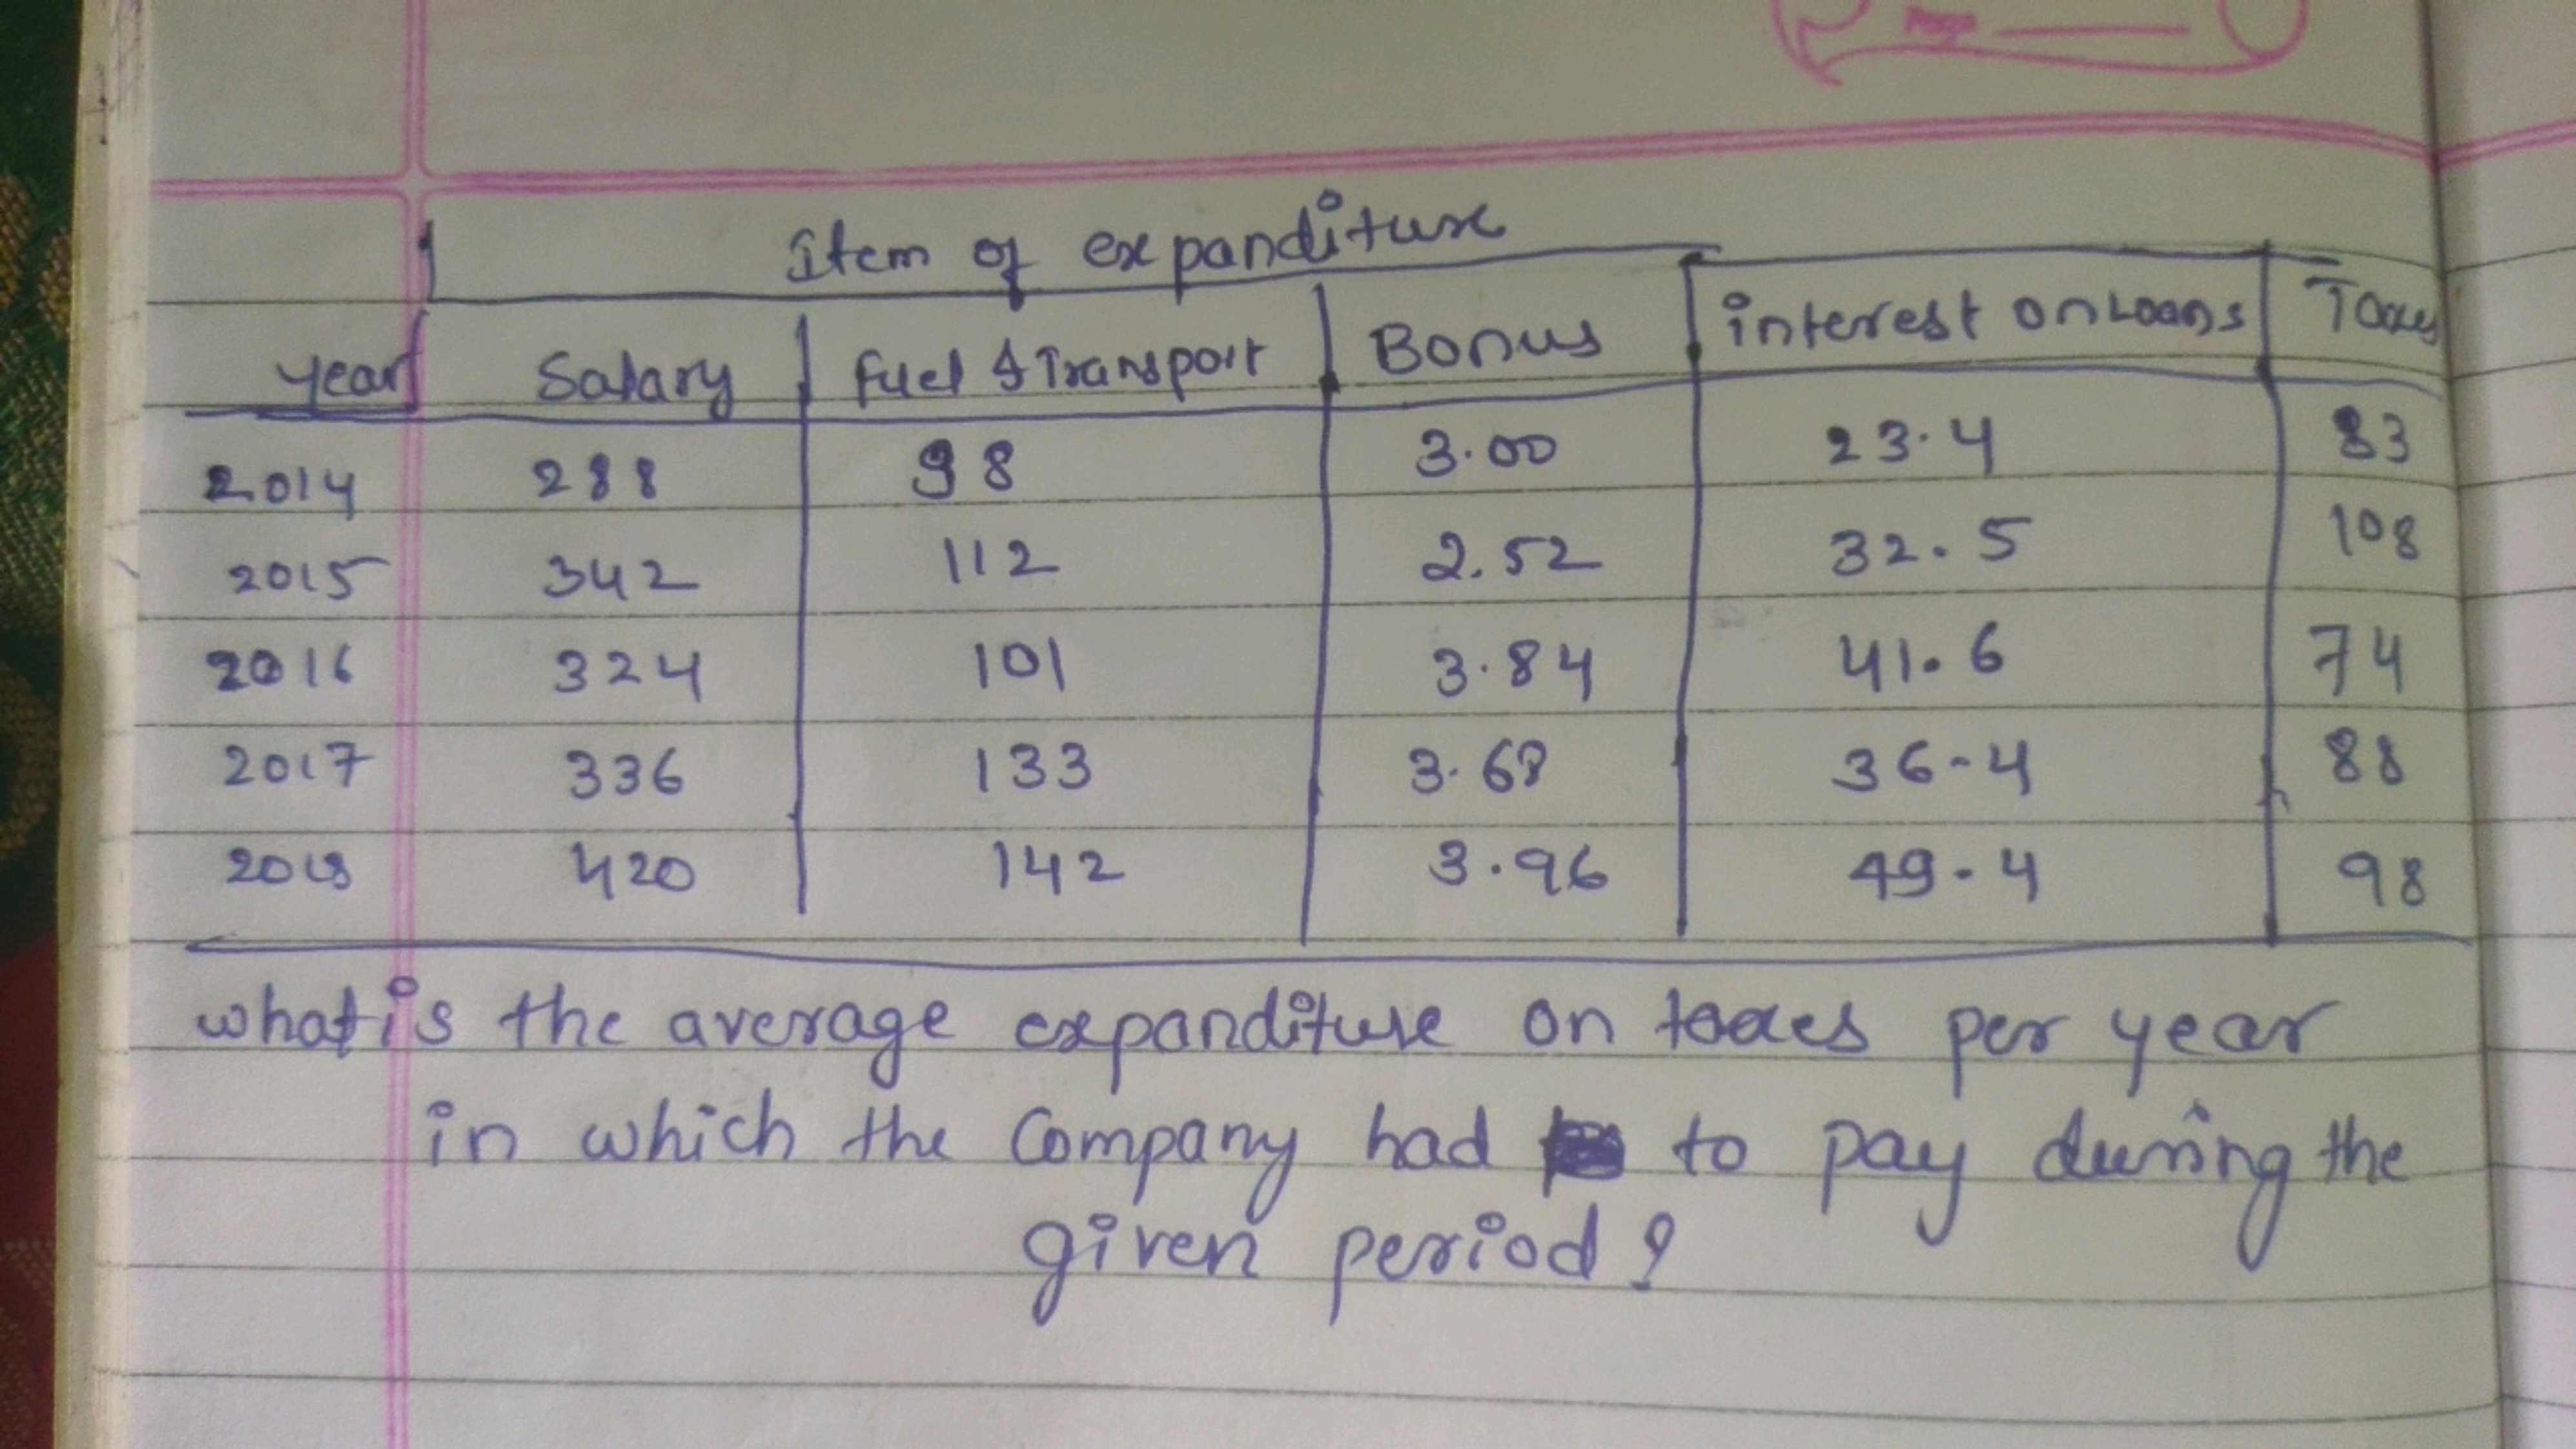 Page
Item of expanditure
year Salary fuel & Transport Bonus interest on Loans Taxes
2014 288 98 3.00 23.4 83
2015 342 112 2.52 32.5 108
2016 324 101 3.84 41.6 74
2017 336 133 3.68 36-4 88
2018 420 142 3.96 49-4 98
what is the average expanditure on taxes per year
in which the Company had to pay during the
given period?